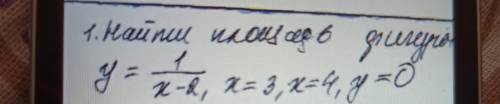 1. Найти площадь фигуры
y = 1/(x-2), x=3, x=4, y=0